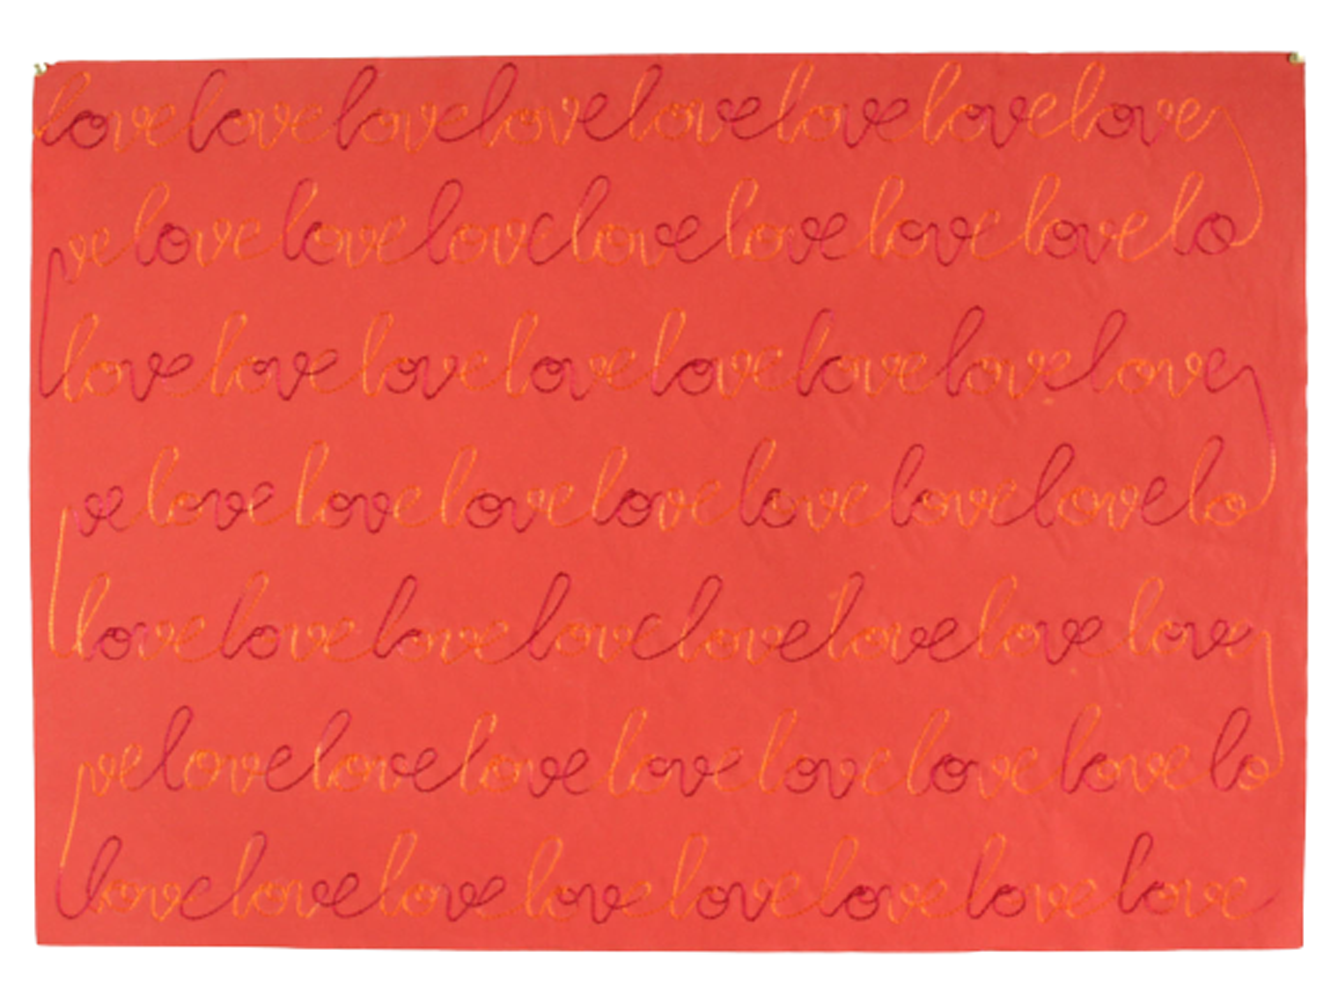 lovelovelovelovelovelovelovelove
velovelovelovelovelovelovelovelo
lovelovelovelovelovelovelovelove
velovelovelovelovelovelovelovelo
lovelovelovelovelovelovelovelove
velovelovelovelovelovelovelovelo
lovelovelovelovelovelovelovelove